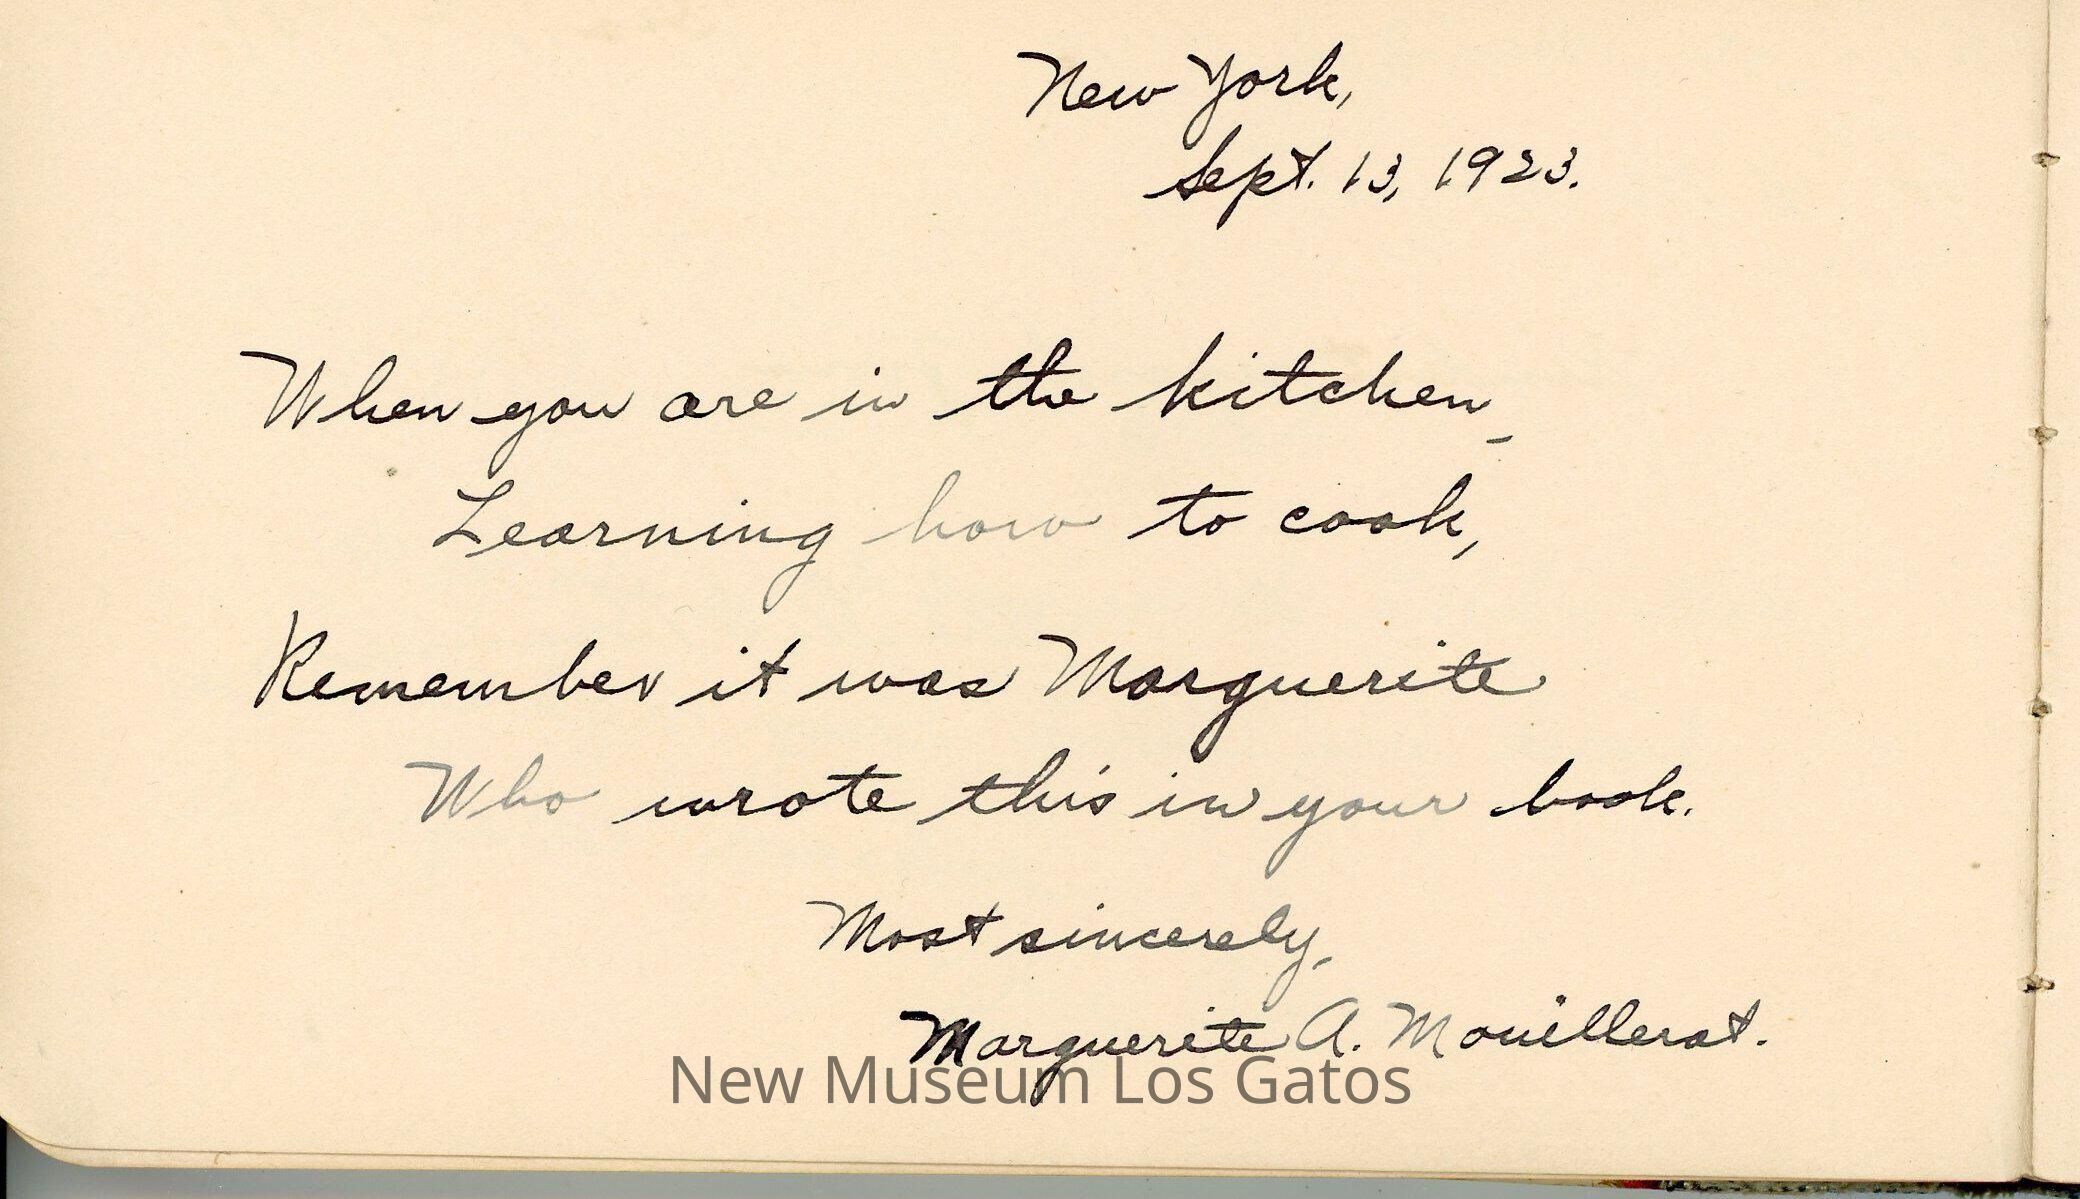 New York,
Sept. 13, 1923.
When you are in the kitchen,
Learning how to cook,
Remember it was Marguerite
Who wrote this in your book.
Most sincerely,
Marguerite A. Mouillerat.
New Museum Los Gatos